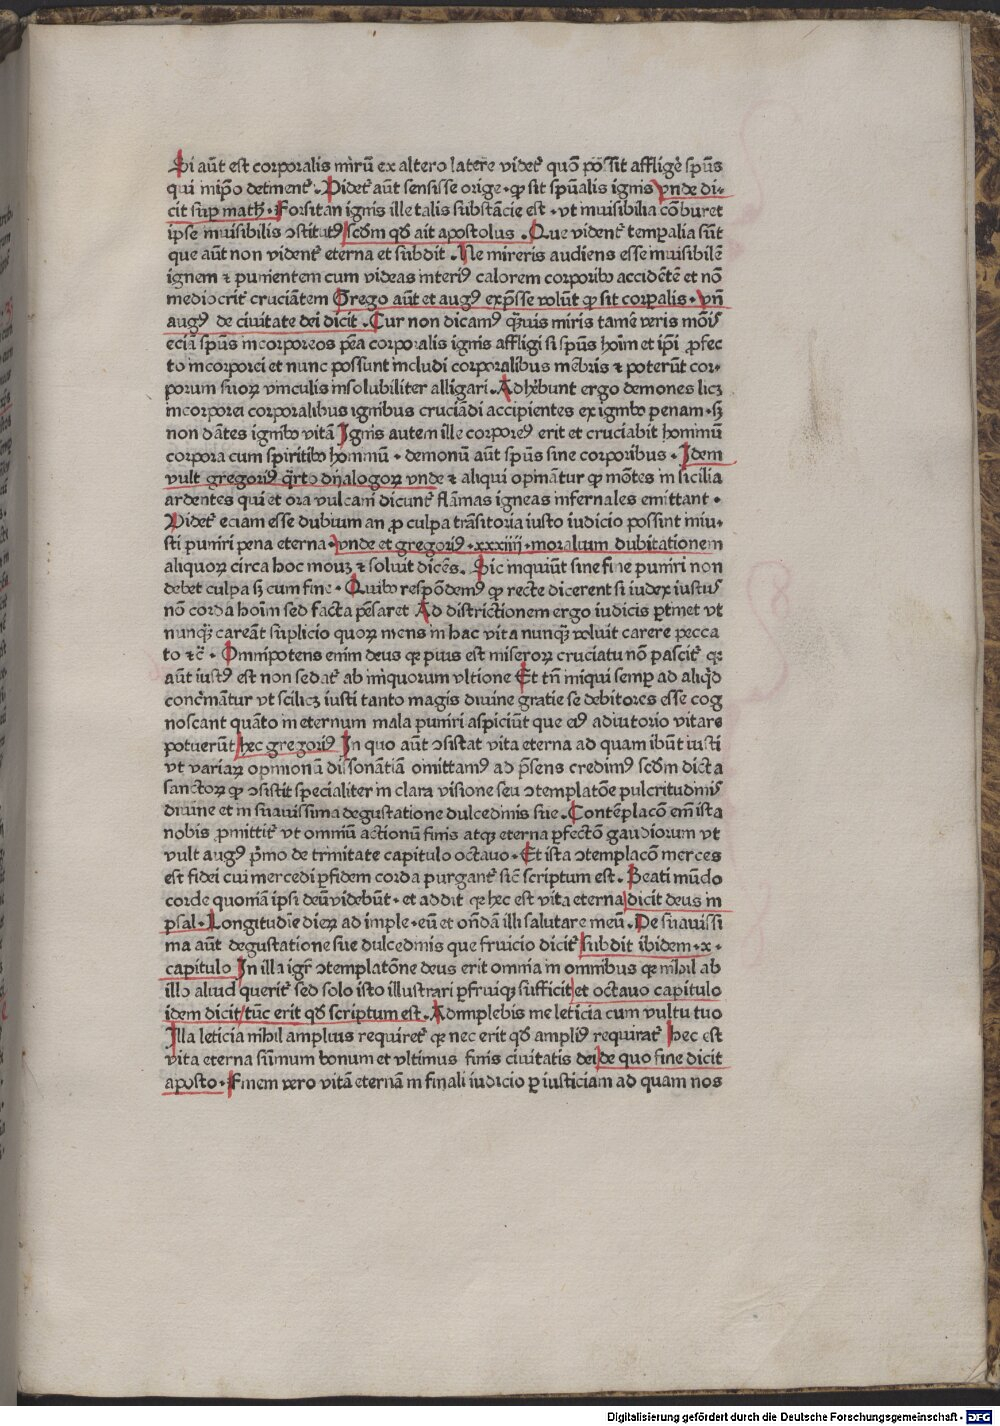 Si aūt est corporalis mirū ex altero latere videt᷑ quō possit affligē sp̄us
qui in ip̄o detinent᷑. Videt᷑ aūt sensisse orige. ꝙ sit spūalis ignis vnde di-
cit sup math. Forsitan ignis ille talis substancie est. vt inuisibilia cōburet
ipse inuisibilis ɔstitutꝰ scdm qd ait apostolus. Que vident᷑ temꝑalia sūt
que aūt non vident᷑ eterna et subdit. Ne mireris audiens esse inuisibilē
ignem ⁊ punientem cum videas interiꝰ calorem corporibꝰ accidētē et nō
mediocrit᷑ cruciātem Grego aūt et augꝰ exp̄sse volūt ꝙ sit corꝑalis. vn̄
augꝰ de ciuitate dei dicit. Cur non dicamꝰ q̄uis miris tamē veris modis
eciā sp̄us incorporeos pena corporalis ignis affligi si sp̄us hoīm et ip̄i ꝓfec
to incorporei et nunc possunt includi corporalibus mēbris ⁊ poterūt cor-
porum suoꝝ vinculis insolubiliter alligari. Adherebunt ergo demones licꝫ
incorporei corporalibus ignibus cruciādi accipientes ex ignibꝰ penam. sꝫ
non dātes ignibꝰ vitā Ignis autem ille corporeꝰ erit et cruciabit hominū
corpora cum spiritibꝰ hominū. demonū aūt sp̄us sine corporibus. Idem
vult gregoriꝰ q̄rto dyalogoꝝ vnde ⁊ aliqui opinātur ꝙ mōtes in sicilia
ardentes qui et ora vulcani dicunt᷑ flāmas igneas infernales emittant.
Videt᷑ eciam esse dubium an ꝓ culpa trāsitoria iusto iudicio possint iniu-
sti puniri pena eterna. vnde et gregoriꝰ. xxxiiij. moralium dubitationem
aliquoꝝ circa hoc mouꝫ ⁊ soluit dicēs. Sic inquiūt sine fine puniri non
debet culpa sꝫ cum fine. Quibꝰ respōdemꝰ ꝙ recte dicerent si iudex iustus
nō corda hoīm sed facta pēsaret Ad districtionem ergo iudicis ꝑtinet vt
nunq̄ careāt suplicio quoꝝ mens in hac vita nunq̄ voluit carere pecca
to ⁊c̄. Omnipotens enim deus qꝛ pius est miseroꝝ cruciatu nō pascit᷑ qꝛ
aūt iustꝰ est non sedat᷑ ab iniquorum vltione Et tn̄ iniqui semꝑ ad aliqd
concremātur vt scilicꝫ iusti tanto magis diuine gratie se debitores esse cog
noscant quāto in eternum mala puniri aspiciūt que eiꝰ adiutorio vitare
potuerūt hec gregoriꝰ In quo aūt ɔsistat vita eterna ad quam ibūt iusti
vt variaꝝ opinionū dissonātiā omittamꝰ ad p̄sens credimꝰ scdm dicta
sanctoꝝ ꝙ ɔsistit specialiter in clara visione seu ɔtemplatōe pulcritudinis
diuine et in suauissima degustatione dulcedinis sue. Contēplacō em̄ ista
nobis ꝓmittit᷑ vt omniū actionū finis atqꝫ eterna ꝑfectō gaudiorum vt
vult augꝰ p̄mo de trinitate capitulo octauo. Et ista ɔtemplacō merces
est fidei cui mercedi ꝑ fidem corda purgant᷑ sic̄ scriptum est. Beati mūdo
corde quoniā ipsi deū videbūt. et addit ꝙ hec est vita eterna dicit deus in
psal. Longitudīe dieꝝ ad imple. eū et ondā illi salutare meū. De suauissi
ma aūt degustatione sue dulcedinis que fruicio dicit᷑ subdit ibidem. x.
capitulo In illa igr̄ ɔtemplatōne deus erit omnia in omnibus qꝛ nihil ab
illo aliud querit᷑ sed solo isto illustrari ꝑfruiqꝫ sufficit et octauo capitulo
idem dicit tūc erit qd scriptum est. Adimplebis me leticia cum vultu tuo
Illa leticia nihil amplius requiret᷑ qꝛ nec erit qd ampliꝰ requirat᷑ hec est
vita eterna sūmum bonum et vltimus finis ciuitatis dei de quo fine dicit
aposto. Finem vero vitā eternā in finali iudicio ꝑ iusticiam ad quam nos
Digitalisierung gefördert durch die Deutsche Forschungsgemeinschaft - DFG